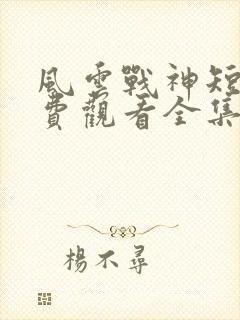 風雲戰神短
費觀看全集
楊不尋